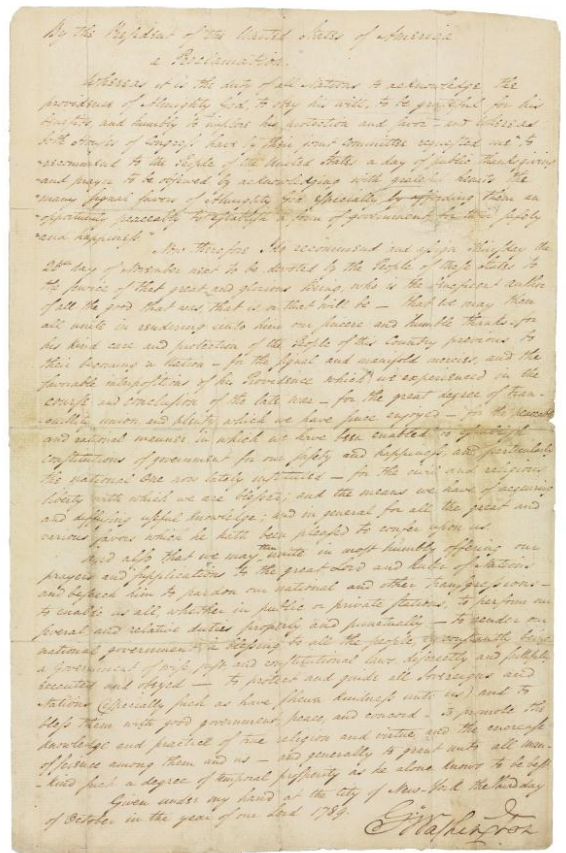 By the President of the United States of America
a Proclamation.
Whereas it is the duty of all Nations to acknowledge the
providence of Almighty God, to obey his will, to be grateful for his
benefits, and humbly to implore his protection and favor – and Whereas
both Houses of Congress have by their joint Committee requested me "to
"recommend to the People of the United States a day of public thanksgiving
"and prayer to be observed by acknowledging with grateful hearts the
"many signal favors of Almighty God, especially by affording them an
"opportunity peaceably to establish a form of government for their safety
"and happiness."
Now therefore I do recommend and assign Thursday the
26th day of November next to be devoted by the People of these States to
the service of that great and glorious Being, who is the beneficent author
of all the good that was, that is, or that will be – that we may then
all unite in rendering unto him our sincere and humble thanks – for
his kind care and protection of the People of this Country previous to
their becoming a Nation – for the signal and manifold mercies, and the
favorable interpositions of his Providence which we experienced in the
course and conclusion of the late war – for the great degree of tran-
-quillity, union, and plenty, which we have since enjoyed – for the peaceable
and rational manner in which we have been enabled to establish
constitutions of government for our safety and happiness, and particularly
the national One now lately instituted – for the civil and religious
liberty with which we are blessed; and the means we have of acquiring
and diffusing useful knowledge; and in general for all the great and
various favors which he hath been pleased to confer upon us.
And also that we may then unite in most humbly offering our
prayers and supplications to the great Lord and Ruler of Nations
and beseech him to pardon our national and other transgressions –
to enable us all, whether in public or private stations, to perform our
several and relative duties properly and punctually – to render our
national government a blessing to all the people, by constantly being
a government of wise, just and constitutional laws, discreetly and faithfully
executed and obeyed – to protect and guide all Sovereigns and
Nations (especially such as have shewn kindness unto us) and to
bless them with good government, peace, and concord – To promote the
knowledge and practice of true religion and virtue, and the encrease
of science among them and us – and generally to grant unto all man-
-kind such a degree of temporal prosperity as he alone knows to be best.
Given under my hand at the City of New-York the third day
of October in the year of our Lord 1789.
Go: Washington